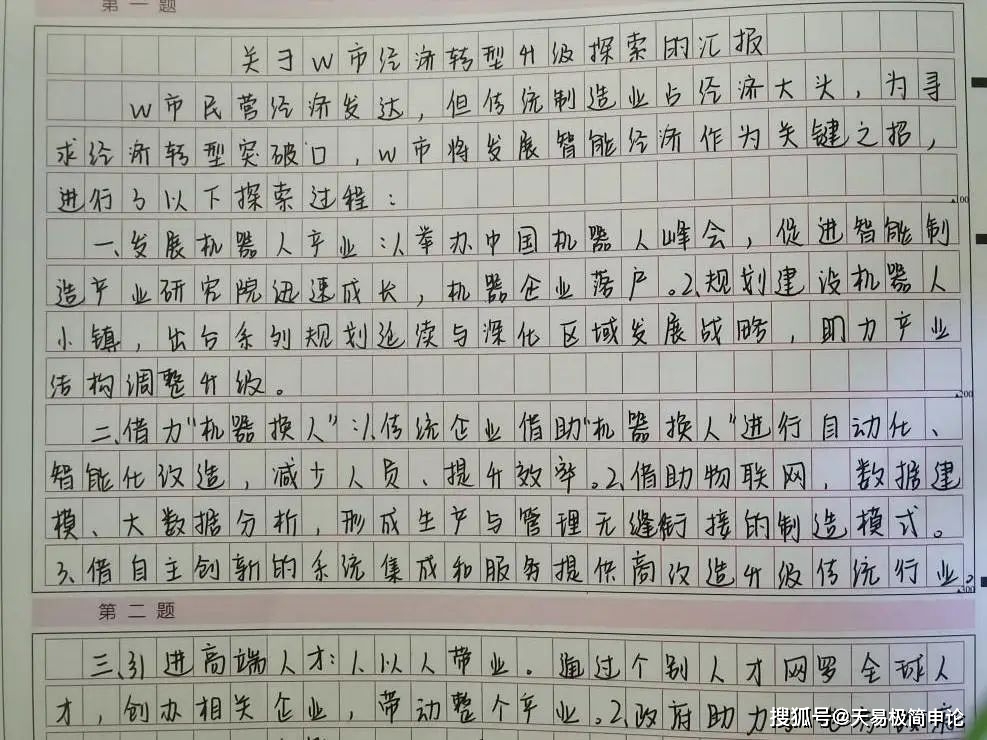 第一题
关于W市经济转型升级探索的汇报
W市民营经济发达,但传统制造业占经济大头,为寻
求经济转型突破口,W市将发展智能经济作为关键之招,
进行了以下探索过程:
100
一、发展机器人产业:1.举办中国机器人峰会,促进智能制
造产业研究院迅速成长,机器企业落户。2.规划建设机器人
小镇,出台系列规划延续与深化区域发展战略,助力产业
结构调整升级。
200
二、借力"机器换人":1.传统企业借助"机器换人"进行自动化、
智能化改造,减少人员、提升效率。2.借助物联网,数据建
模、大数据分析,形成生产与管理无缝衔接的制造模式。
3.借自主创新的系统集成和服务提供商改造升级传统行业。
300
第二题
三、引进高端人才:1.以人带业。通过个别人才网罗全球人
才,创办相关企业,带动整个产业。2.政府助力
搜狐号@天易极简申论